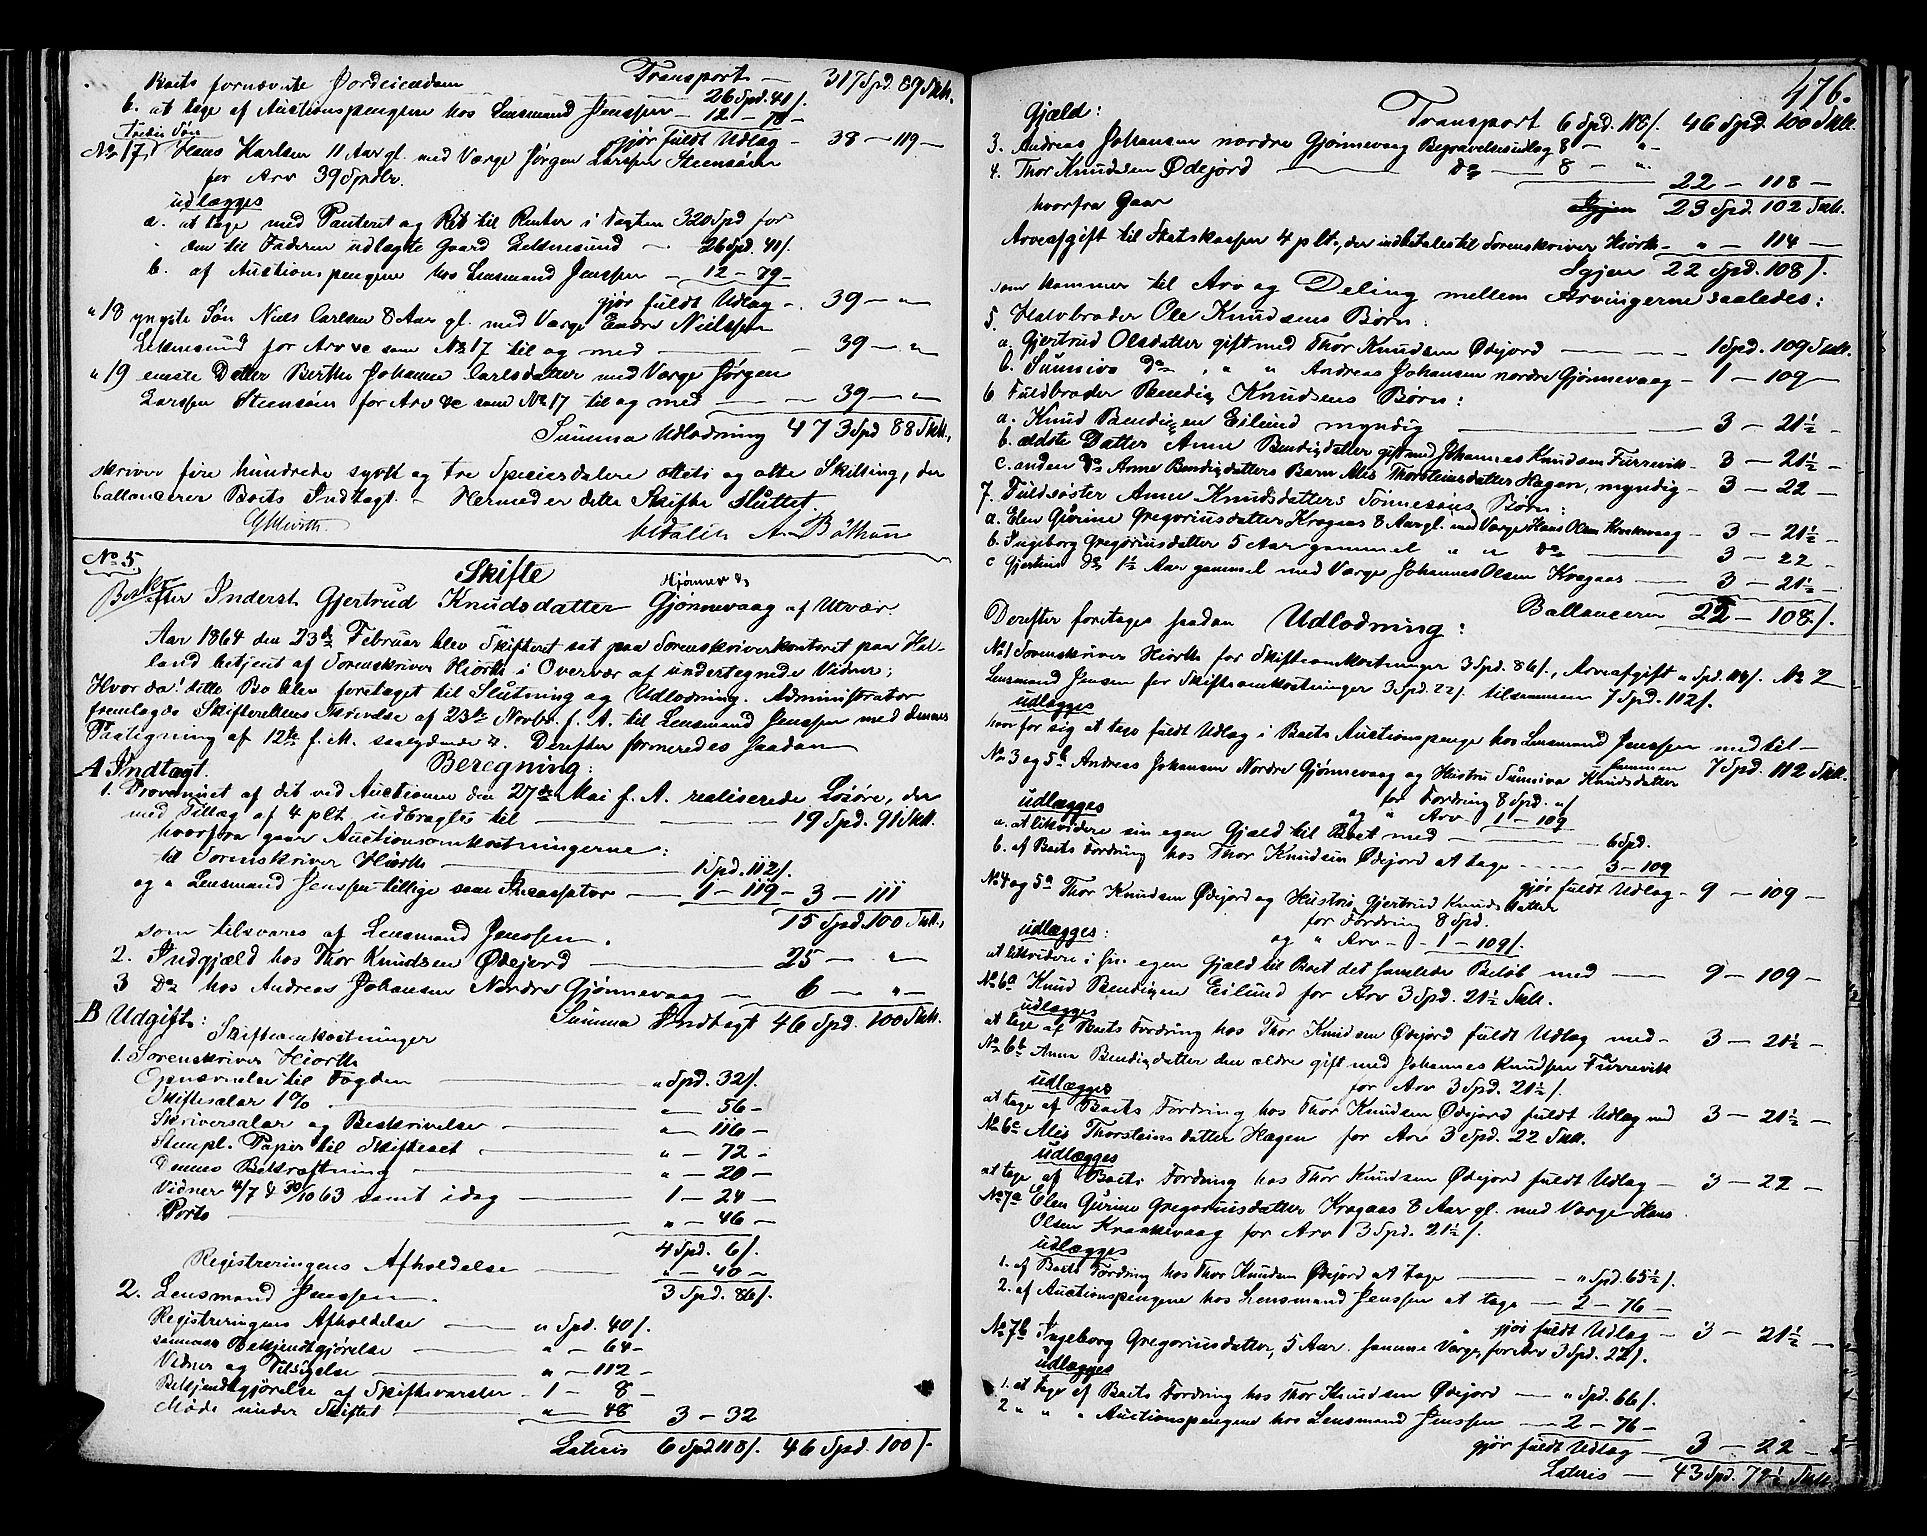 Transport — 317 Spd. 89 Skll.
Boets fornævnte Jordeiendom — 26 Spd. 41 /.
b. at tage af Auctionspengene hos Lensmand Jenssen — 12 — 78 —
gjør fuldt Udlag — 38 — 119 —
Tredie Søn
No 17, Hans Karlsen 11 Aar gl. med Værge Jørgen Larssen Steensøen
for Arv 39 Spdlr.
udlægges
a. at tage med Panteret og Ret til Renter i Vagten 320 Spd for
den til Faderen udlagte Gaard Leknesund — 26 Spd. 41 /.
b. af Auctionspengene hos Lensmand Jenssen — 12 — 79 —
gjør fuldt Udlag — 39 — " —
" 18 yngste Søn Niels Carlsen 8 Aar gl. med Værge Endre Nielssen
Leknesund for Arv &c som No 17 til og med — 39 — " —
" 19 eneste Datter Berthe Johanne Carlsdatter med Værge Jørgen
Larssen Steensøen for Arv &c som No 17 til og med — 39 — " —
Summa Udlodning 473 Spd 88 Skll.,
skriver fire hundrede sytti og tre Speciesdalere otteti og otte Skilling, der
ballancerer Boets Indtægt. — Hermed er dette Skifte Sluttet.
GHiorth
No 5
Skifte
Hjønnev &
efter Inderst Gjertrud Knudsdatter Gjønnevaag af Utvær.
Aar 1864 den 23de Februar blev Skifteret sat paa Sorenskriverkontoret paa Hal-
land betjent af Sorenskriver Hiorth i Overvær af undertegnede Vidner;
Hvor da! dette Bo blev foretaget til Slutning og Udlodning. Administrator
fremlagde Skifterettens Skrivelse af 23de Novbr. f. A. til Lensmand Jenssen med dennes
Paategning af 12te f. M. saalydende &. Derefter formeredes saadan
Beregning:
A Indtægt.
1. Provenuet af dit ved Auctionen den 27de Mai f. A. realiserede Løsøre, der
med Tillæg af 4 plt. udbragtes til — 19 Spd. 91 Skll.
hvorfra gaar Auctionsomkostningerne:
til Sorenskriver Hiorth — 1 Spd. 112 /.
og " Lensmand Jenssen tillige som Incassator — 1 — 119 — 3 — 111
15 Spd. 100 Skll.
som tilsvares af Lensmand Jenssen.
2. Indgjæld hos Thor Knudsen Ødejord — 25 — " —
3 Do hos Andreas Johansen Nordre Gjønnevaag — 6 — " —
Summa Indtægt 46 Spd. 100 Skll.
B Udgift:
Skifteomkostninger
1. Sorenskriver Hiorth
Opnævnelse til Fogden — " Spd. 32 /.
Skiftesalær 1 % — " — 56 —
Skriversalær og Beskrivelse — " — 116 —
Stempl. Papir til Skiftet — " — 72 —
Dennes Bekræftning — " — 20 —
Vidner 4/7 & 30/10 63 samt idag — 1 — 24 —
Porto — " — 46 —
4 Spd. 6 /.
Registreringens Afholdelse — " — 40 —
3 Spd. 86 /.
2. Lensmand Jenssen.
Registreringens Afholdelse — " Spd. 40 /.
sammes Bekjendtgjørelse — " — 64 —
Vidner og Tilsigelse — " — 112 —
Bekjendtgjørelse af Skiftevarsler — 1 — 8 —
Møde under Skiftet — " — 48 3 — 32
Lateris 6 Spd 118 /. 46 Spd. 100 /—
476.
Transport 6 Spd. 118 /. 46 Spd. 100 Skll.
Gjæld:
3. Andreas Johansen nordre Gjønnevaag Begravelsesudlæg 8 — " —
4. Thor Knudsen Ødejord — do — 8 — " —
22 — 118 —
hvorfra Gaar Igjen 23 Spd. 102 Skll.
Arveafgift til Statskassen 4 plt., der indbetales til Sorenskriver Hiorth — " — 114 —
Igjen 22 Spd. 108 /.
som kommer til Arv og Deling mellem Arvingerne saaledes:
5. Halvbroder Ole Knudsens Børn:
a. Gjertrud Olsdatter gift med Thor Knudsen Ødejord — 1 Spd. 109 Skll.
b. Sunniva do " " Andreas Johansen nordre Gjønnevaag — 1 — 109 —
6 Fuldbroder Bendix Knudsens Børn:
a. Knud Bendixen Eilund myndig — 3 — 21½ —
b. ældste Datter Anne Bendixdatter gift med Johannes Knudsen Furrevik — 3 — 21½ —
c. anden do Anne Bendixdatters Barn Alis Thorsteinsdatter Hagen, myndig — 3 — 22 —
7. Fuldsøster Anne Knudsdatters Tonnesøns Børn:
a. Elen Gurine Gregoriusdatter Kragaas 8 Aar gl. med Værge Hans Olsen Krakevaag — 3 — 21½ —
b. Ingeborg Gregoriusdatter 5 Aar gammel " " do — 3 — 22 —
c Gjertine do 1½ Aar gammel med Værge Johannes Olsen Kragaas — 3 — 21½ —
Ballancerer 22 — 108 /.
Derefter foretages saadan Udlodning:
No 1 Sorenskriver Hiorth for Skifteomkostninger 3 Spd. 86 /., Arveafgift " Spd. 114 /. No 2
Lensmand Jensen for Skifteomkostninger 3 Spd. 22 /. tilsammen 7 Spd. 112 /.
udlægges
hver for sig at tage fuldt Udlæg i Boets Auctionspenge hos Lensmand Jenssen med til-
sammen 7 Spd. 112 Skll.
No 3 og 5b Andreas Johansen Nordre Gjønnevaag og Hustru Sunniva Knudsdatter
for Fordring 8 Spd. "/
udlægges og " Arv — 1 — 109
a. at likvidere sin egen Gjæld til Boet med — 6 Spd.
b. af Boets Fordring hos Thor Knudsen Ødejord at tage — 3 — 109
gjør fuldt Udlag — 9 — 109 —
No 4 og 5a Thor Knudsen Ødejord og Hustru Gjertrud Knudsdatter
for Fordring 8 Spd.
udlægges: og " Arv — 1 — 109 /.
at likvidere i sin egen Gjæld til Boet det samlede Beløb med — 9 — 109 —
No 6a Knud Bendixen Eilund for Arv 3 Spd. 21½ Skll.
udlægges
at tage af Boets Fordring hos Thor Knudsen Ødejord fuldt Udlæg med — 3 — 21½ —
No 6b Anne Bendixdatter den ældre gift med Johannes Knudsen Furrevik
udlægges for Arv 3 Spd. 21½ /.
at tage af Boets Fordring hos Thor Knudsen Ødejord fuldt Udlæg med 3 — 21½ —
No 6c Alis Thorsteinsdatter Hagen for Arv 3 Spd. 22 Skll.
udlægges
at tage af Boets Fordring hos Thor Knudsen Ødejord fuldt Udlag — 3 — 22 —
No 7a Elen Gurine Gregoriusdatter Kragaas 8 Aar gl. med Værge Hans
Olsen Kraakevaag for Arv 3 Spd. 21½ /.
udlægges
1. af Boets Fordring hos Thor Knudsen Ødejord at tage — " Spd. 65½ /.
2. af Auctionspengene hos Lensmand Jenssen at tage — 2 — 76 —
gjør fuldt Udlag — 3 — 21½ —
No 7b Ingeborg Gregoriusdatter, 5 Aar. samme Værge, for Arv 3 Spd. 22 /.
udlægges
1. at tage af Boets Fordring hos Thor Knudsen Ødejord — " Spd. 66 /.
2 " " " Auctionspengene hos Lensmand Jenssen — 2 — 76 —
gjør fuldt Udlag — 3 — 22 —
Lateris — 43 Spd. 72½ Skll.